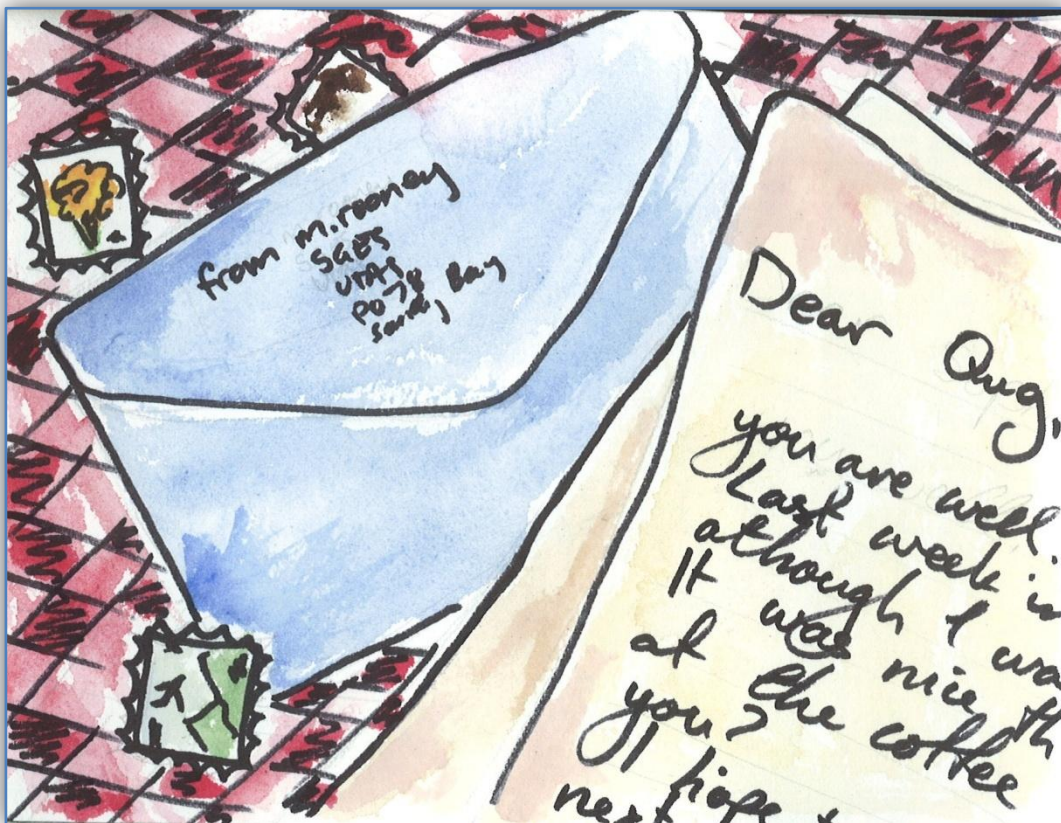 from m.rooney
SGES
UTAS
PO 78
Sandy Bay
Dear Qug,
you are well.
Last week in
athough I wa
It was nice th
at the coffee
you?
I hope
next